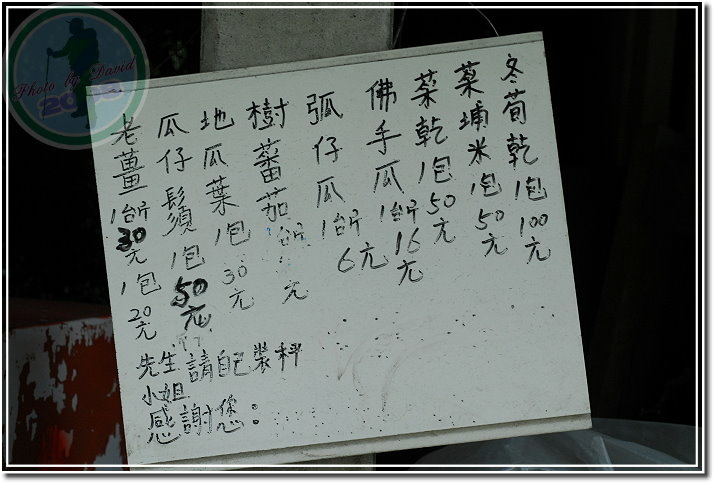 冬荀乾1包100元
菜埔米1包50元
菜乾1包50元
佛手瓜1台斤16元
弧仔瓜1台斤6元
樹蕃茄 台斤 元
地瓜葉1包30元
瓜仔鬚1包50元
老薑1台斤30元1包20元
先生 請自己裝秤
小姐
感謝您:
Photo by David